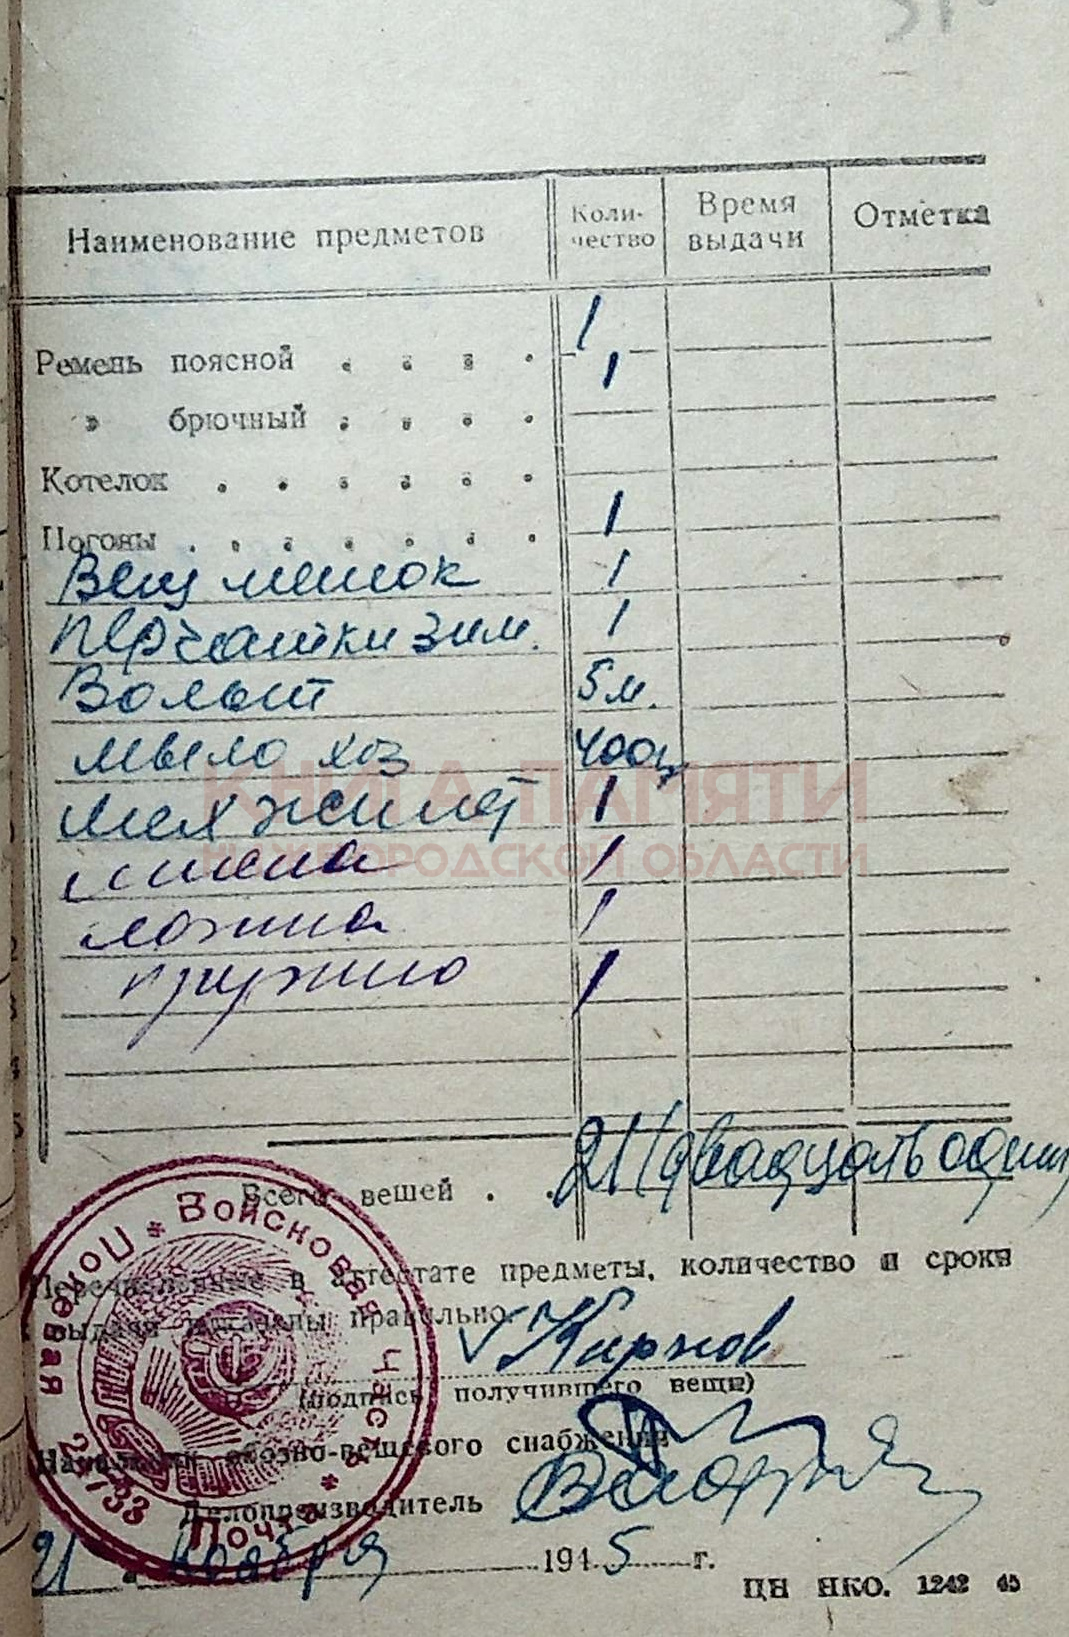 Наименование предметов
Коли-
чество
Время
выдачи
Отметка
1
Ремень поясной . . . . 1
» брючный . . . .
Котелок . . . . . .
Погоны . . . . . . . 1
Вещ мешок 1
Перчатки зим. 1
5 м.
мыло хоз 400гр
Мех жилет 1
1
ложка 1
1
КНИГА ПАМЯТИ
НИЖЕГОРОДСКОЙ ОБЛАСТИ
Всего вещей . . 21 (двадцать один
Перечисленные в аттестате предметы, количество и сроки
выдачи указаны правильно.
(подпись получившего вещи)
Начальник обозно-вещевого снабжения
Делопроизводитель
21 " ноября 1945 г.
ЦН НКО. 1242 45
* Войсковая часть * Полевая Почта